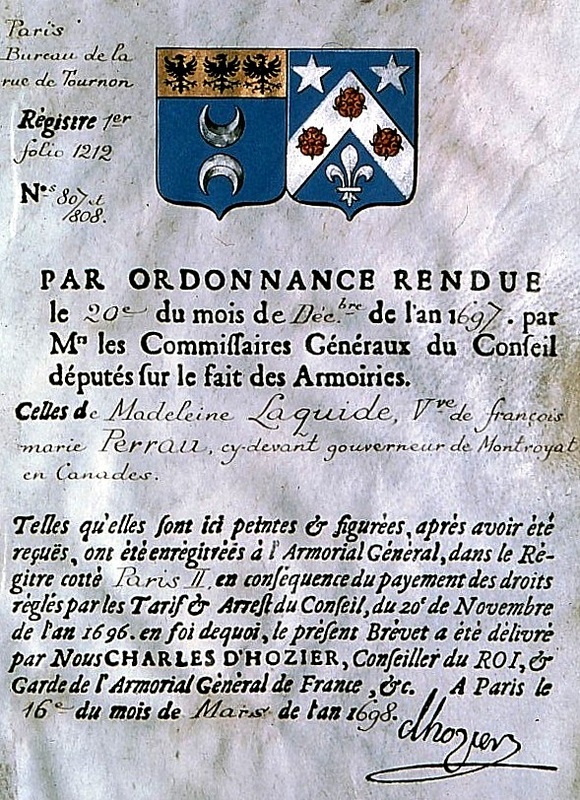 Paris
Bureau de la
rue de Tournon
Règistre 1er
folio 1212
Nos 807 et
1808.
PAR ORDONNANCE RENDUE
le 20e du mois de Déc.bre de l'an 1697. par
Mrs les Commiſſaires Généraux du Conſeil
députés ſur le fait des Armoiries.
Celles de Madeleine Laguide, Vve de françois
marie Perrau, cy-devant gouverneur de Montroyat
en Canades.
Telles qu'elles ſont ici peintes & figurées, après avoir été
reçués, ont été enrégitrées à l'Armorial Général, dans le Ré-
gitre cotté Paris II, en conſéquence du payement des droits
réglés par les Tarif & Arreſt du Conſeil, du 20e de Novembre
de l'an 1696. en foi dequoi, le préſent Brévet a été délivré
par Nous CHARLES D'HOZIER, Conſeiller du ROI, &
Garde de l'Armorial Général de France, &c. A Paris le
16e du mois de Mars de l'an 1698.
dhozier